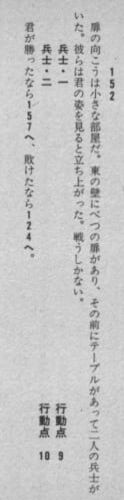 152
扉の向こうは小さな部屋だ。東の壁にべつの扉があり、その前にテーブルがあって二人の兵士が
いた。彼らは君の姿を見ると立ち上がった。戦うしかない。
兵士・一 行動点 9
兵士・二 行動点 10
君が勝ったなら157へ、敗けたなら124へ。